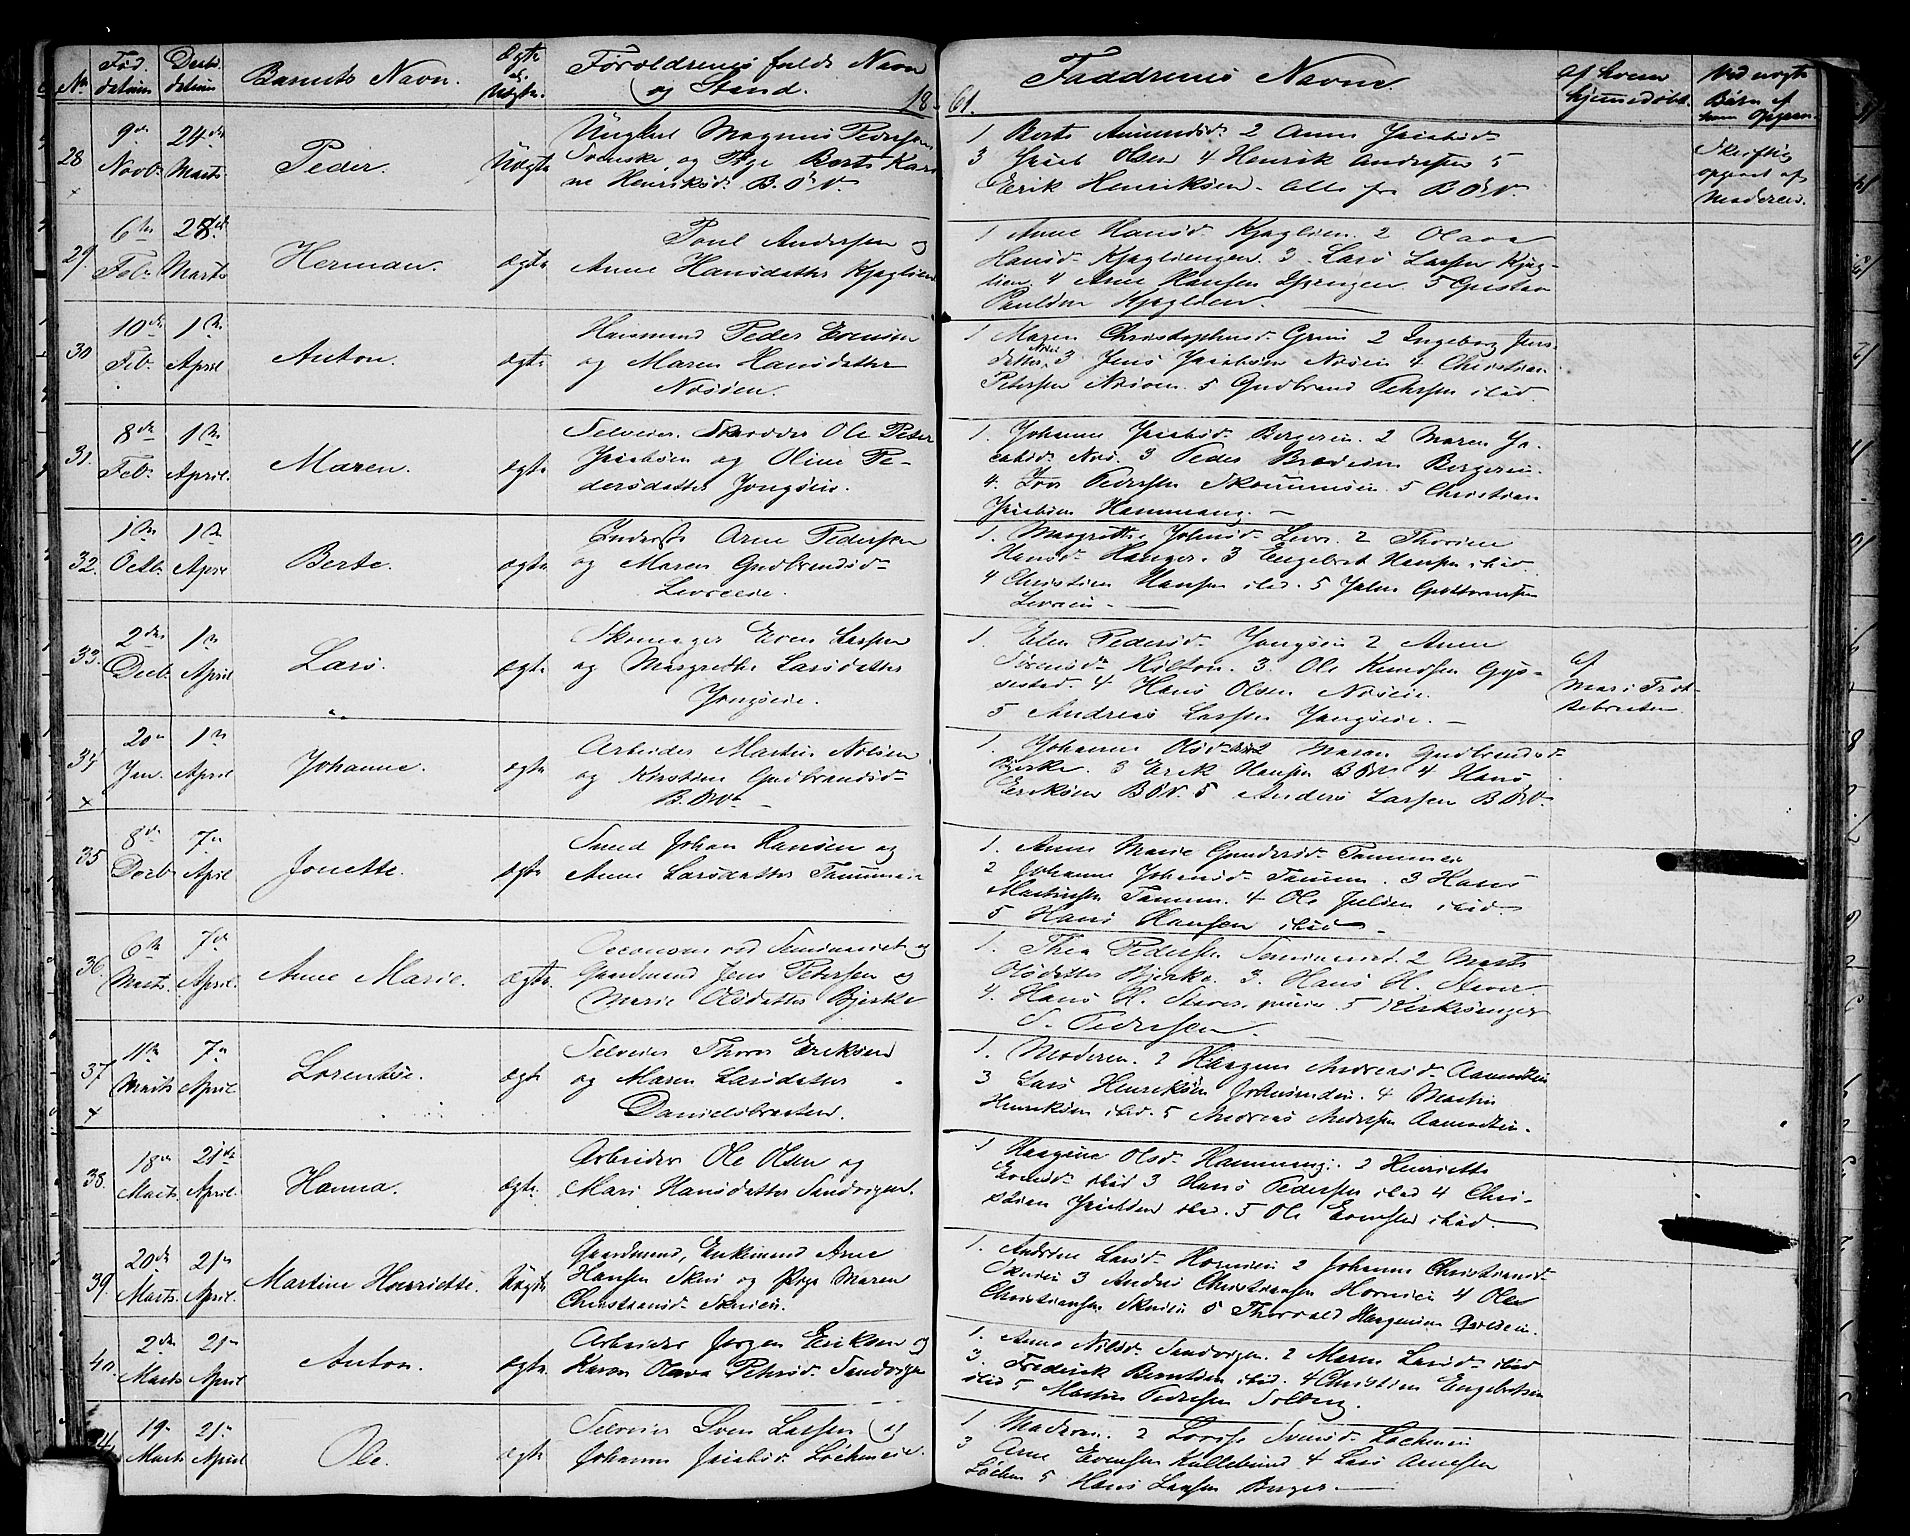 No. Fød. datum Daabs datum Barnets Navn. Ægte el. Uægte. Forældrenes fulde Navn og Stand. 18
61. Faddrenes Navne. af hvem hjemmedøbt. Ved uægte Børn af hvem Opgiven.
28 9de Novb. 24de Marts Peder. Uægte
Ungkarl Magnus Pedersen
Svenske og Pige Berte Kari
ne Henriksd. B.Ø.V
1 Berte Amundsd. 2 Anne Jacobsd.
3 Jacob Olsen 4 Henrik Andersen 5
Erik Henriksen. alle fra B.Ø.V.
Skriftlig
opgivet af
Moderen.
29. 6te Feb. 25de Marts Herman. ægte
Poul Andersen og
Anne Hansdatter Kjaglien
1 Anne Hansd. Kjaglien. 2 Olava
Hansd. Kjagliengen. 3 Lars Larsen Kjag-
lien. 4 Arne Hansen 5 Gustav
Paulsen Kjaglien.
30 10de Feb. 1ste April Anton. ægte
Huusmand Peder Evensen
og Maren Hansdatter
Nøsøen.
1 Maren Christophersd. Grini 2 Ingeborg Jens-
datter. 3 Jens Jacobsen Nøsøen 4 Christian
Petersen 5 Gudbrand Petersen ibid.
31. 8de Feb. 1ste April. Maren. ægte
Selveier. Skrædder Ole Peder
Jacobsen og Oline Pe-
dersdatter Jongseie.
1. Johanne Jacobsd. Bergerei. 2 Maren Ja-
cobsd. 3 Peder Bergerei.
4. Pedersen 5 Christian
Jacobsen Hammang.
32. 1ste Octb. 1ste April Berte. ægte
Inderst Arne Pedersen
og Maren Gudbrandsd.
Levreeie.
1. Margrethe Johnsd. Levre. 2 Thorine
Hansd. Hanger. 3 Engebret Hansen ibid
4 Christian Hansen ibid. 5 Johan
Levreie.
33. 2den Decb. 1ste April Lars. ægte
Skomager Even Larsen
og Margrethe Larsdatter
Jongseie.
1. Elen Pedersd. Jongseie 2 Anne
Sørensd. Holton. 3. Ole Knudsen Gjøs-
sestad. 4 Hans Olsen
5 Andreas Larsen Jongseie.
af
Mari Trøt-
tebraaten
34 20de Jan. 1ste April Johanne. ægte
Arbeider Martin Nilsen
og Kirstine Gudbrandsd.
B.Ø.V.
1. Johanne Olsd. 2 Maren Gudbrandsd.
Bjerke. 3 Erik Hansen B.Ø.V. 4 Hans
Eriksen B.Ø.V. 5 Anders Larsen B.Ø.V.
35 8de Decb. 7de April Jonette. ægte
Smed Johan Hansen og
Anne Larsdatter
1. Anne Marie Gundersd.
2 Johanne Johansd. 3 Hans
Martinsen 4 Ole Julsen ibid.
5 Hans Hansen ibid
36. 6te Marts. 7de April. Anne Marie. ægte.
Oeconom ved Seminariet og
Gaardmand Jens Petersen og
Marie Olsdatter Bjerke
1. Thea Pedersen 2 Marte
Olsdatter Bjerke. 3. Hans H. Staver.
4. Hans H. Staver, junior. 5 Kirkesanger
S. Pedersen.
37 11te Marts 7de April Lorentse. ægte
Selveier Thore Eriksen
og Maren Larsdatter
Danielsbraaten.
1. Moderen. 2 Haagine Andreasd. Aamodtein
3 Lars Henriksen 4 Martin
Henriksen ibid. 5 Andreas Andersen Aamodtein.
38. 18de Marts 21de April. Hanna. ægte.
Arbeider Ole Olsen og
Mari Hansdatter Sandvigen.
1 Haagine Olsd. Hammang. 2 Henriette
Evensd. ibid 3 Hans Pedersen ibid 4 Chri-
stian Jacobsen ibid. 5 Ole Evensen ibid.
39. 20de Marts. 21de April. Martine Henriette. Uægte
Gaardmand, Enkemand Arne
Hansen Skui og Pige Maren
Christiansd. Skuiei.
1. Andrine Larsd. Horniei 2 Johanne Christiansd.
Skuiei 3 Anders Christiansen Horniei 4 Ole
Christiansen Skuiei 5 Thorvald Haagensen
40. 2den Marts 21de April Anton. ægte
Arbeider Jørgen Eriksen og
Karen Olava Petersd. Sandvigen
1. Anne Nilsd. Sandvigen. 2 Maren Larsd. ibid
3. Frederik Berntsen ibid. 4 Christian Engebretsen
ibid 5 Martin Pedersen Solberg.
41. 19de Marts 21de April Ole. ægte
Selveier Sven Larsen og
Johanne Jacobsd. Løkeneie.
1 Moderen. 2 Lovise Svensd. Løkeneie
3 Arne Evensen Kullebund 4 Lars Arnesen
Løken 5 Hans Larsen Berger.